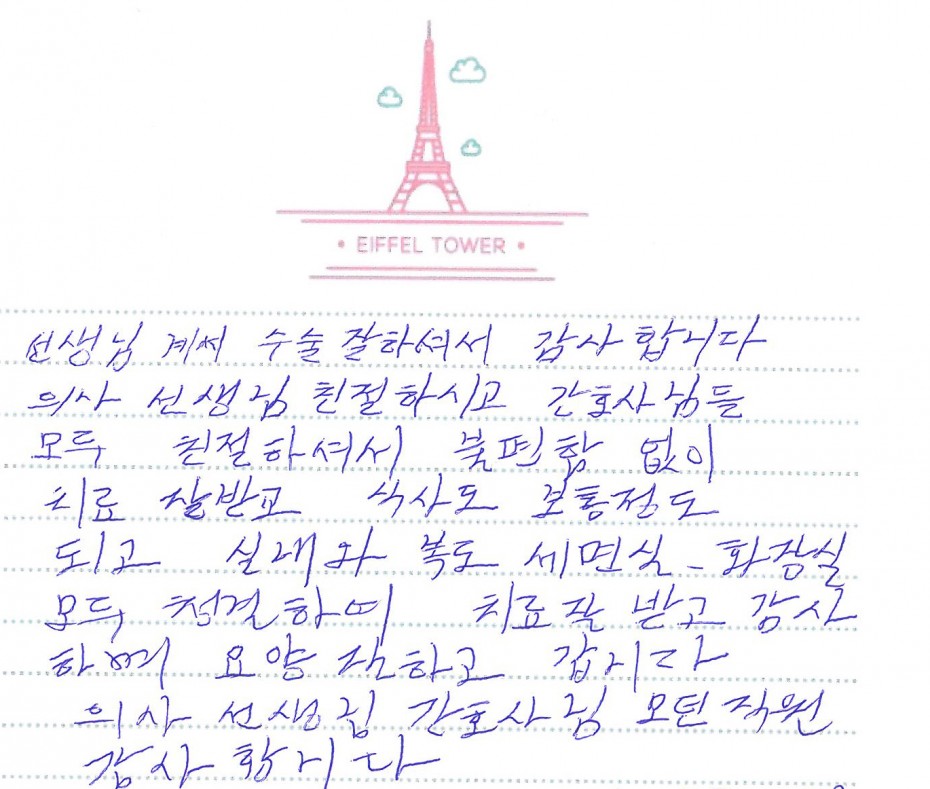 • EIFFEL TOWER •
선생님 계써 수술 잘하셔서 감사 합니다
의사 선생님 친절하시고 간호사님들
모두 친절하셔서 불편함 없이
치료 잘받고 식사도 보통정도
되고 실내와 복도 세면실 - 화장실
모두 청결하며 치료잘 받고 감사
하며 요양 잘하고 갑니다
의사 선생님 간호사님 모든 직원
감사 합니다